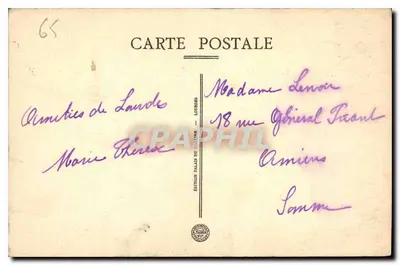 65
CARTE POSTALE
Amitiés de Lourdes
Marie Thérèse
EDITION PALAIS DU ROSAIRE - LOURDES
Madame Lenoir
18 rue Général Friant
Amiens
Somme
CRAPHIL